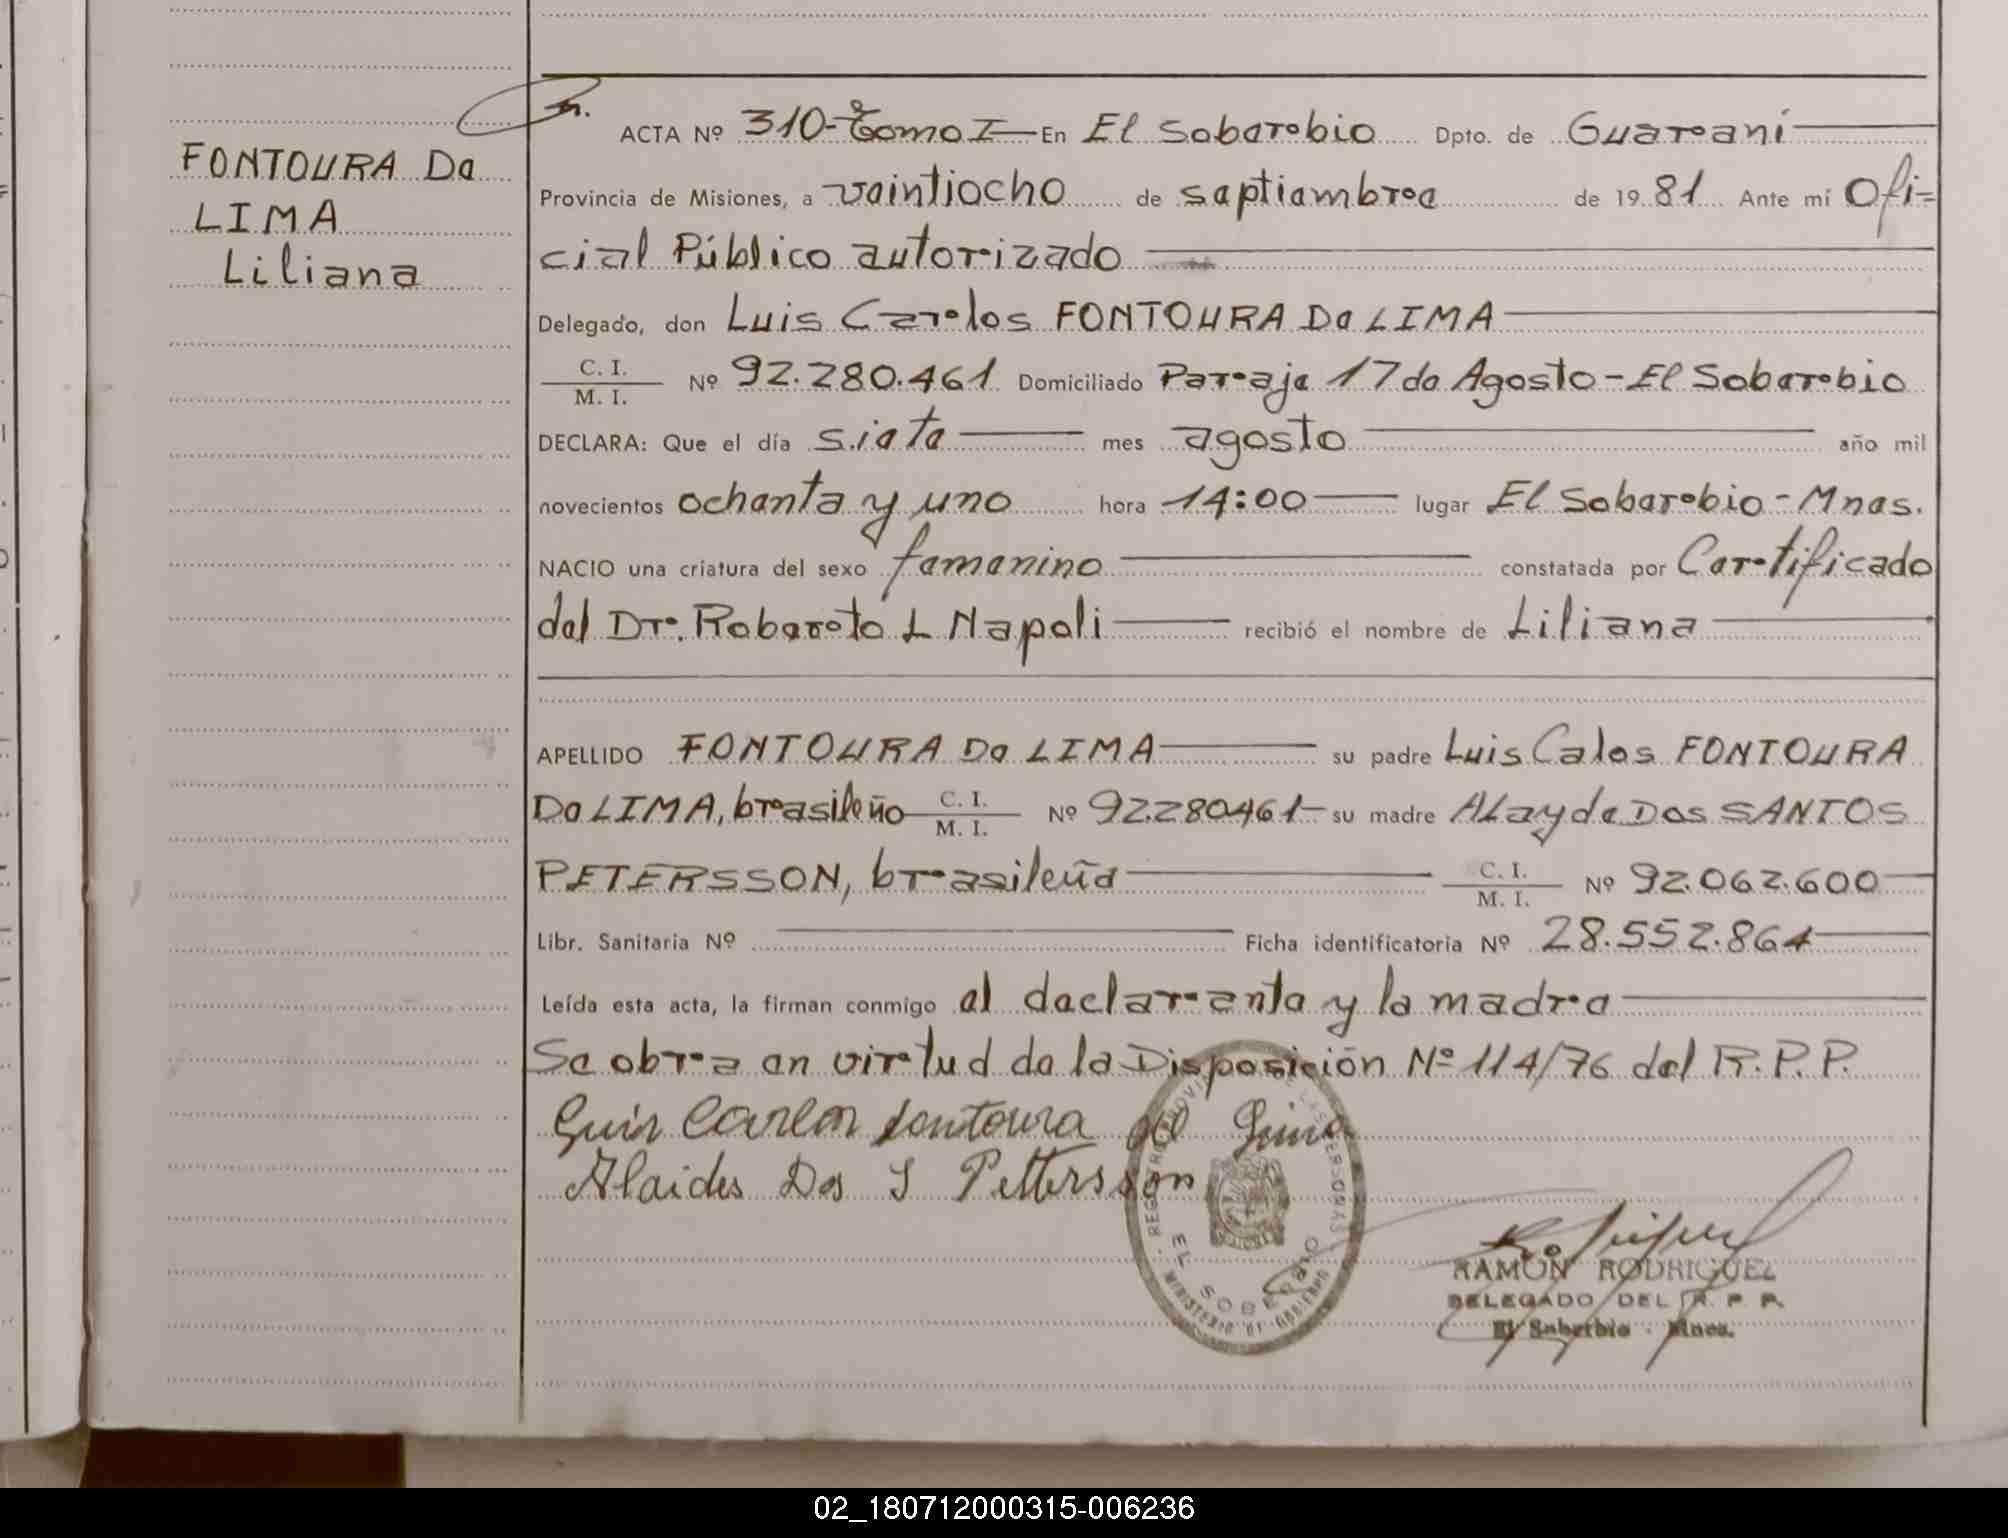 ACTA Nº 310-Tomo I En El Soberbio Dpto. de Guaraní
FONTOURA De
LIMA
Liliana
Provincia de Misiones, a veintiocho de septiembre de 1981 Ante mí Ofi=
cial Público autorizado
Delegado, don Luis Carlos FONTOURA De LIMA
C. I.
M. I. Nº 92.280.461 Domiciliado Paraje 17 de Agosto - El Soberbio
DECLARA: Que el día siete mes agosto año mil
novecientos ochenta y uno hora 14:00 lugar El Soberbio - Mnes.
NACIO una criatura del sexo femenino constatada por Certificado
del Dr. Roberto L Napoli recibió el nombre de Liliana
APELLIDO FONTOURA De LIMA su padre Luis Calos FONTOURA
De LIMA, brasileño C. I.
M. I. Nº 92.280461- su madre ALayde Dos SANTOS
PETERSSON, brasileña C. I.
M. I. Nº 92.062.600
Libr. Sanitaria Nº Ficha identificatoria Nº 28.552.864
Leída esta acta, la firman conmigo el declarante y la madre
Se obra en virtud de la Disposición Nº 114/76 del R.P.P.
Luis Carlos Fontoura de Lima
Alaides Dos S Pettersson
REGISTRO PROVINCIAL DE LAS PERSONAS
EL SOBERBIO
MINISTERIO DE GOBIERNO
RAMON RODRIGUEZ
DELEGADO DEL R. P. P.
El Soberbio - Mnes.
02_180712000315-006236